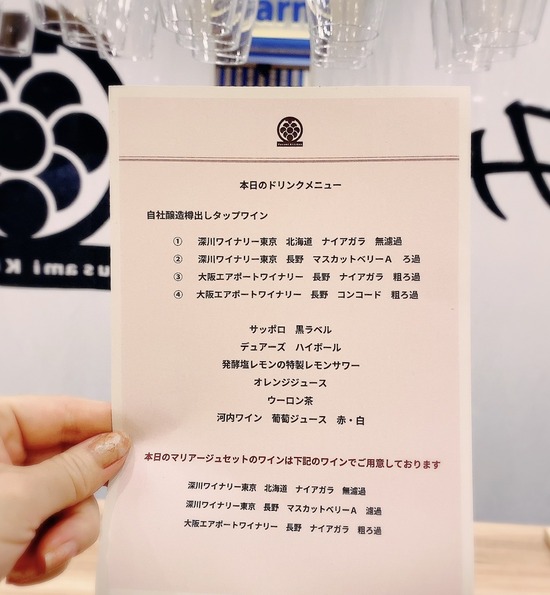 arn
usami K
Fusami Kitchen
本日のドリンクメニュー
自社醸造樽出しタップワイン
① 深川ワイナリー東京 北海道 ナイアガラ 無濾過
② 深川ワイナリー東京 長野 マスカットベリーA ろ過
③ 大阪エアポートワイナリー 長野 ナイアガラ 粗ろ過
④ 大阪エアポートワイナリー 長野 コンコード 粗ろ過
サッポロ 黒ラベル
デュアーズ ハイボール
発酵塩レモンの特製レモンサワー
オレンジジュース
ウーロン茶
河内ワイン 葡萄ジュース 赤・白
本日のマリアージュセットのワインは下記のワインでご用意しております
深川ワイナリー東京 北海道 ナイアガラ 無濾過
深川ワイナリー東京 長野 マスカットベリーA 濾過
大阪エアポートワイナリー 長野 ナイアガラ 粗ろ過